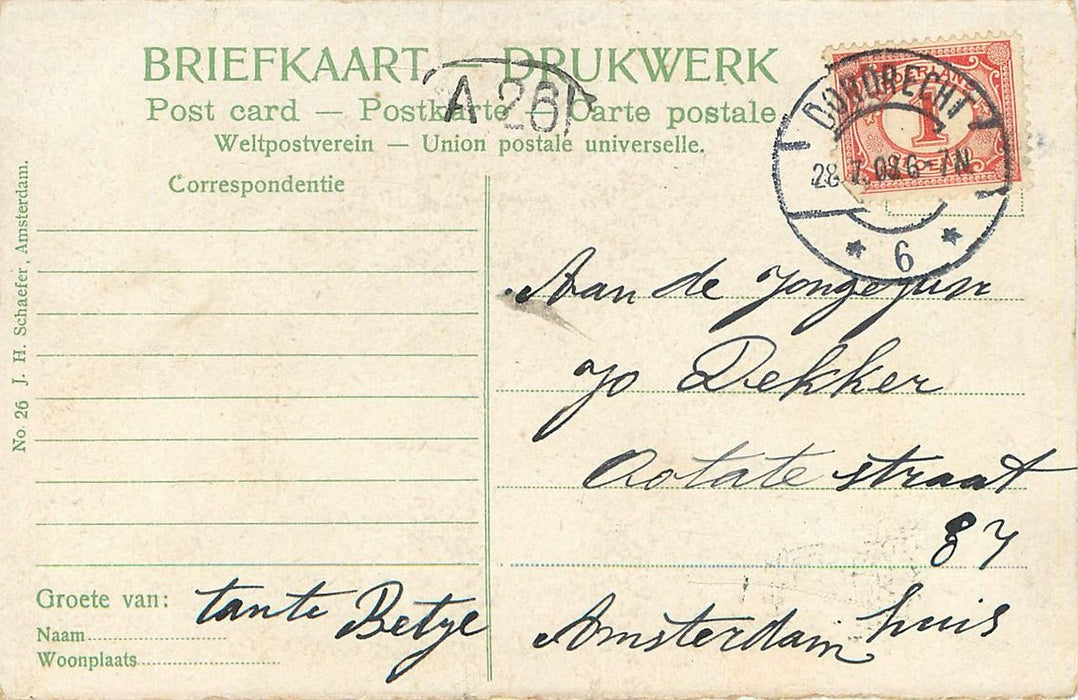 BRIEFKAART — DRUKWERK
Post card — Postkarte — Carte postale
Weltpostverein — Union postale universelle.
A 26
NEDERLAND
1
DORDRECHT
28. 7. 08 6-7N
6
Correspondentie
No. 26 J. H. Schaefer, Amsterdam.
Aan de Jongejuv
Jo Dekker
straat
87
Amsterdam
huis
Groete van: tante Betje
Naam
Woonplaats